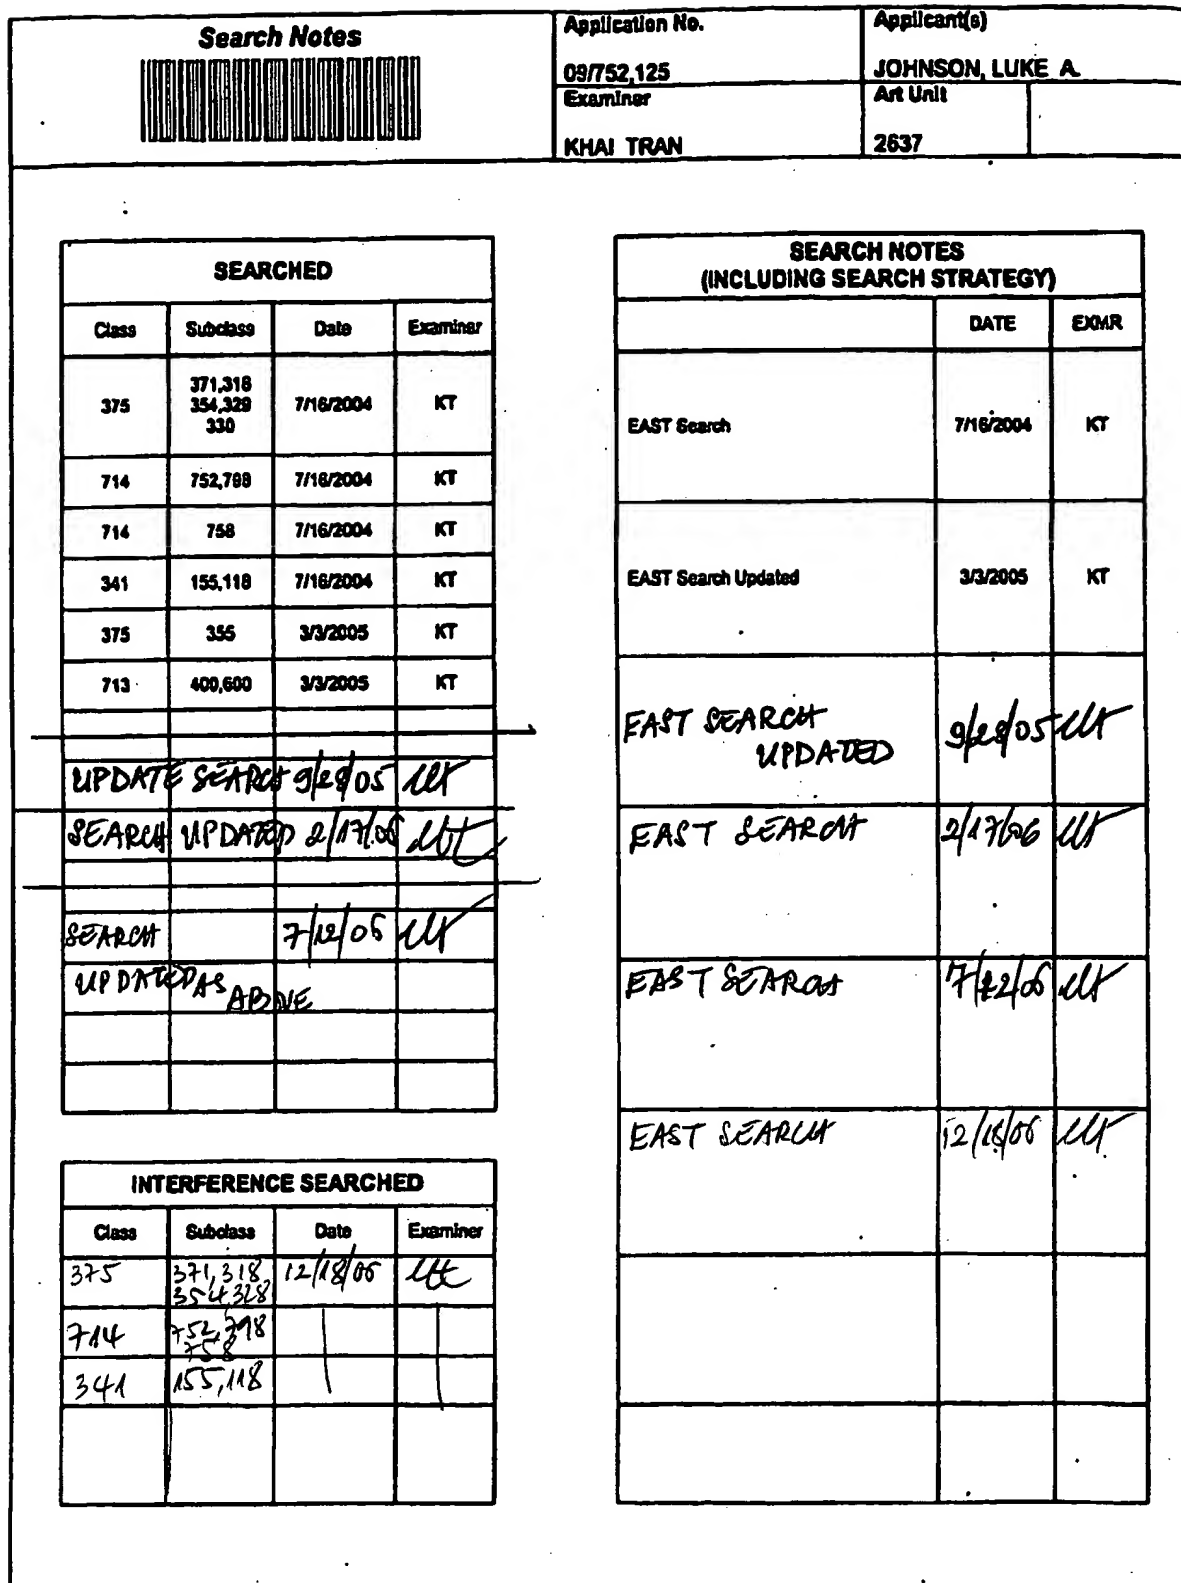 Search Notes
Application No.
09/752,125
Applicant(s)
JOHNSON, LUKE A.
Examiner
KHAI TRAN
Art Unit
2637
SEARCHED
Class Subclass Date Examiner
375 371,318 354,329 330 7/16/2004 KT
714 752,798 7/16/2004 KT
714 758 7/16/2004 KT
341 155,118 7/16/2004 KT
375 355 3/3/2005 KT
713 400,600 3/3/2005 KT
UPDATE SEARCH 9/28/05
SEARCH UPDATED 2/17/06
SEARCH 7/12/06
UPDATED AS
ABOVE
INTERFERENCE SEARCHED
Class Subclass Date Examiner
375 371,318, 12/18/06
354,328
714 752,798
758
341 155,118
SEARCH NOTES
(INCLUDING SEARCH STRATEGY)
DATE EXMR
EAST Search 7/16/2004 KT
EAST Search Updated 3/3/2005 KT
EAST SEARCH
UPDATED 9/28/05
EAST SEARCH 2/17/06
EAST SEARCH
EAST SEARCH